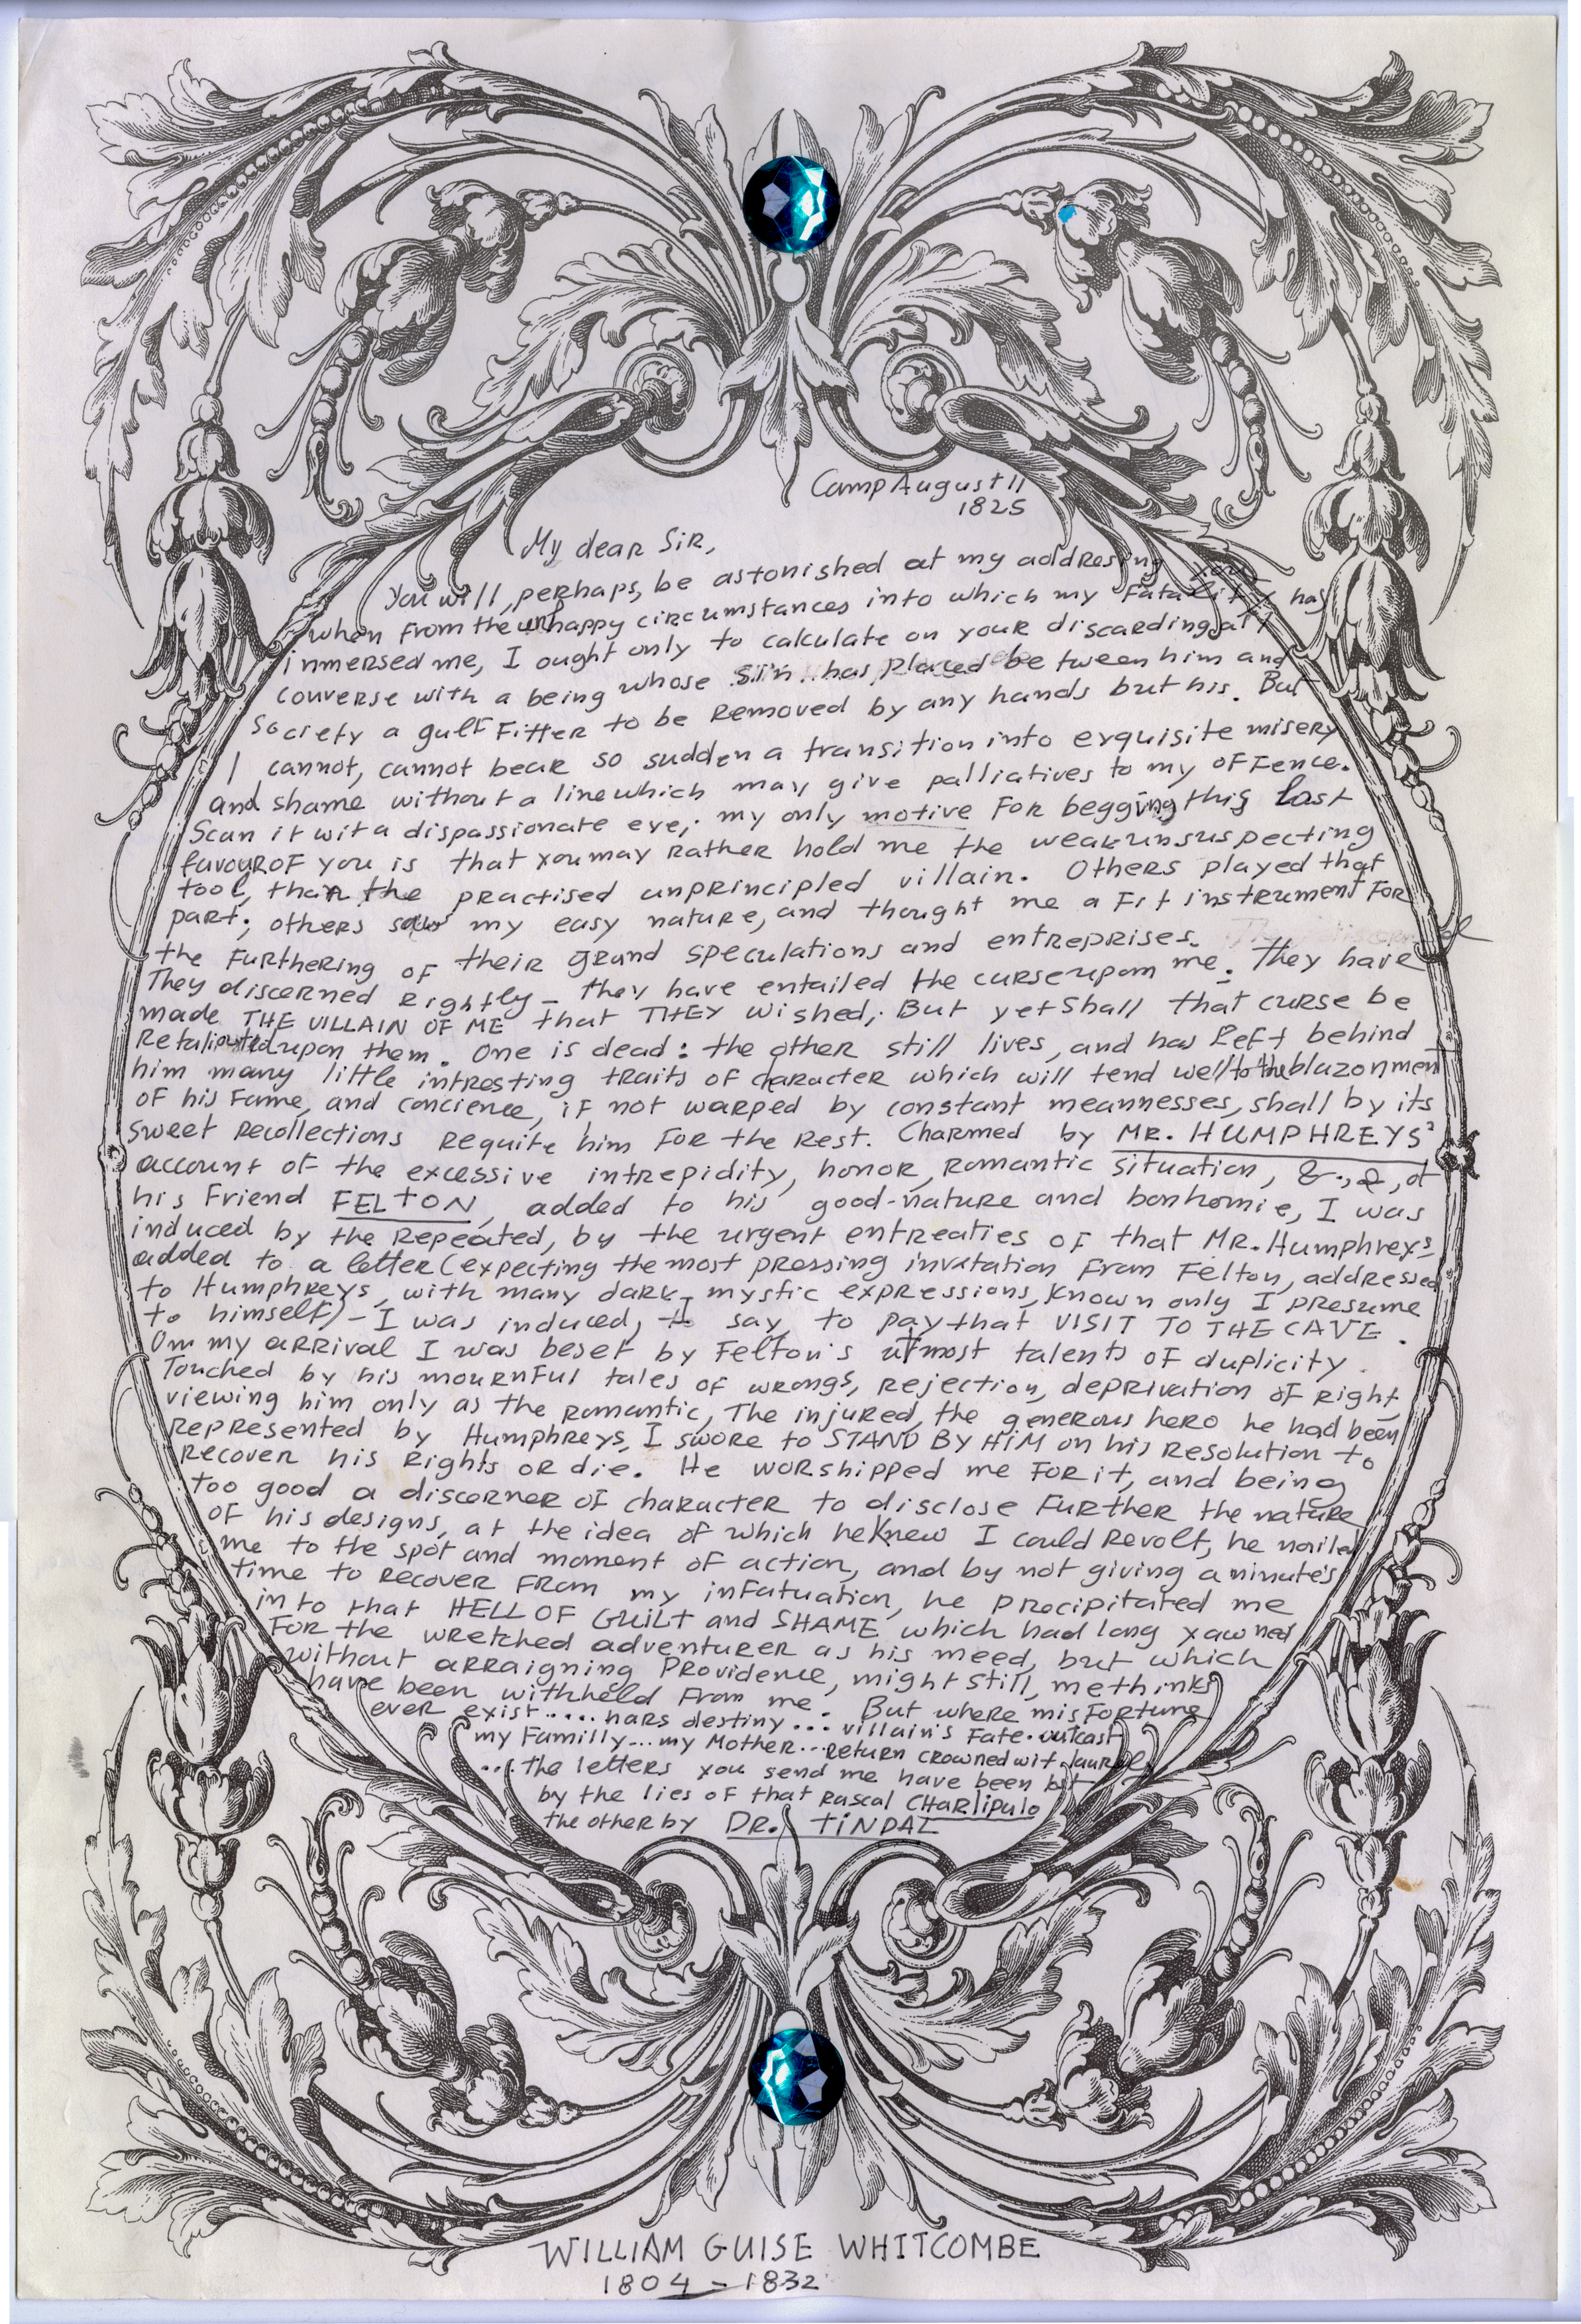 Camp August 11
1825
My dear Sir,
You will, perhaps, be astonished at my addresing you
when from the unhappy circumstances into which my Fatality has
inmersed me, I ought only to calculate on your discarding all
converse with a being whose sin has placed between him and
society a gulf Fitter to be removed by any hands but his. But
I cannot, cannot bear so sudden a transition into exquisite misery
and shame without a line which may give palliatives to my offence.
Scan it wit a dispassionate eye; my only motive For begging this last
favour of you is that you may rather hold me the weak unsuspecting
tool, than the practised unprincipled villain. Others played that
part; others saw my easy nature, and thought me a Fit instrument For
the Furthering of their grand speculations and entreprises.
They discerned rightly - they have entailed the curse upon me. They have
made THE VILLAIN OF ME that THEY wished; But yet shall that curse be
upon them. One is dead: the other still lives, and has left behind
him many little intresting traits of caracter which will tend well to the blazonment
of his Fame, and concience, if not warped by constant meannesses, shall by its
sweet recollections requite him For the rest. Charmed by MR. HUMPHREYS'
account of the excessive intrepidity, honor, romantic situation, &., &, of
his Friend FELTON, added to his good-nature and bonhomie, I was
induced by the repeated, by the urgent entreaties of that MR. Humphreys
added to a letter (expecting the most pressing invitation From Felton, addressed
to Humphreys, with many dark, mystic expressions, Known only I presume
to himself) - I was induced, I say, to pay that VISIT TO THE CAVE.
On my arrival I was beset by Felton's utmost talents of duplicity.
Touched by his mournful tales of wrongs, rejection, deprivation of right,
viewing him only as the romantic, The injured, the generous hero he had been
represented by Humphreys, I swore to STAND BY HIM on his resolution to
recover his Rights or die. He worshipped me For it, and being
too good a discerner of character to disclose Further the nature
of his designs, at the idea of which he Knew I could revolt, he nailed
me to the spot and moment of action, and by not giving a minute's
time to recover From my infatuation, he precipitated me
into that HELL OF GUILT and SHAME which had long yawned
For the wretched adventurer as his meed, but which
without arraigning Providence, might still, methinks
have been withheld From me. But where misfortune
ever exist..... hars destiny... villain's Fate. outcast
my Familly... my Mother... return crowned wit laurels
... the letters you send me have been lost
by the lies of that rascal CHARLIPULO
the other by DR. TINDAL
WILLIAM GUISE WHITCOMBE
1804 - 1832